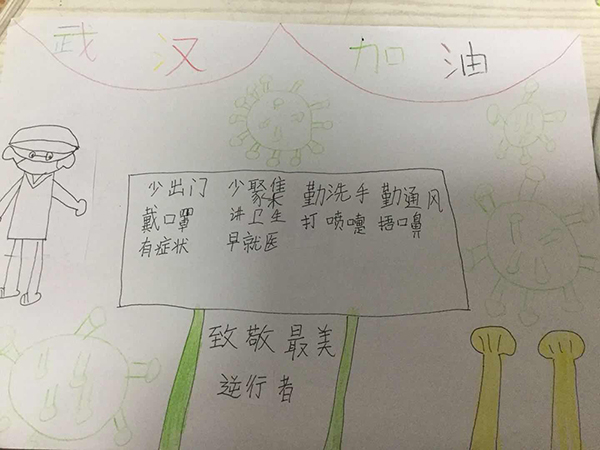 武汉加油
少出门 少聚集 勤洗手 勤通风
戴口罩 讲卫生 打喷嚏 捂口鼻
有症状 早就医
致敬最美
逆行者